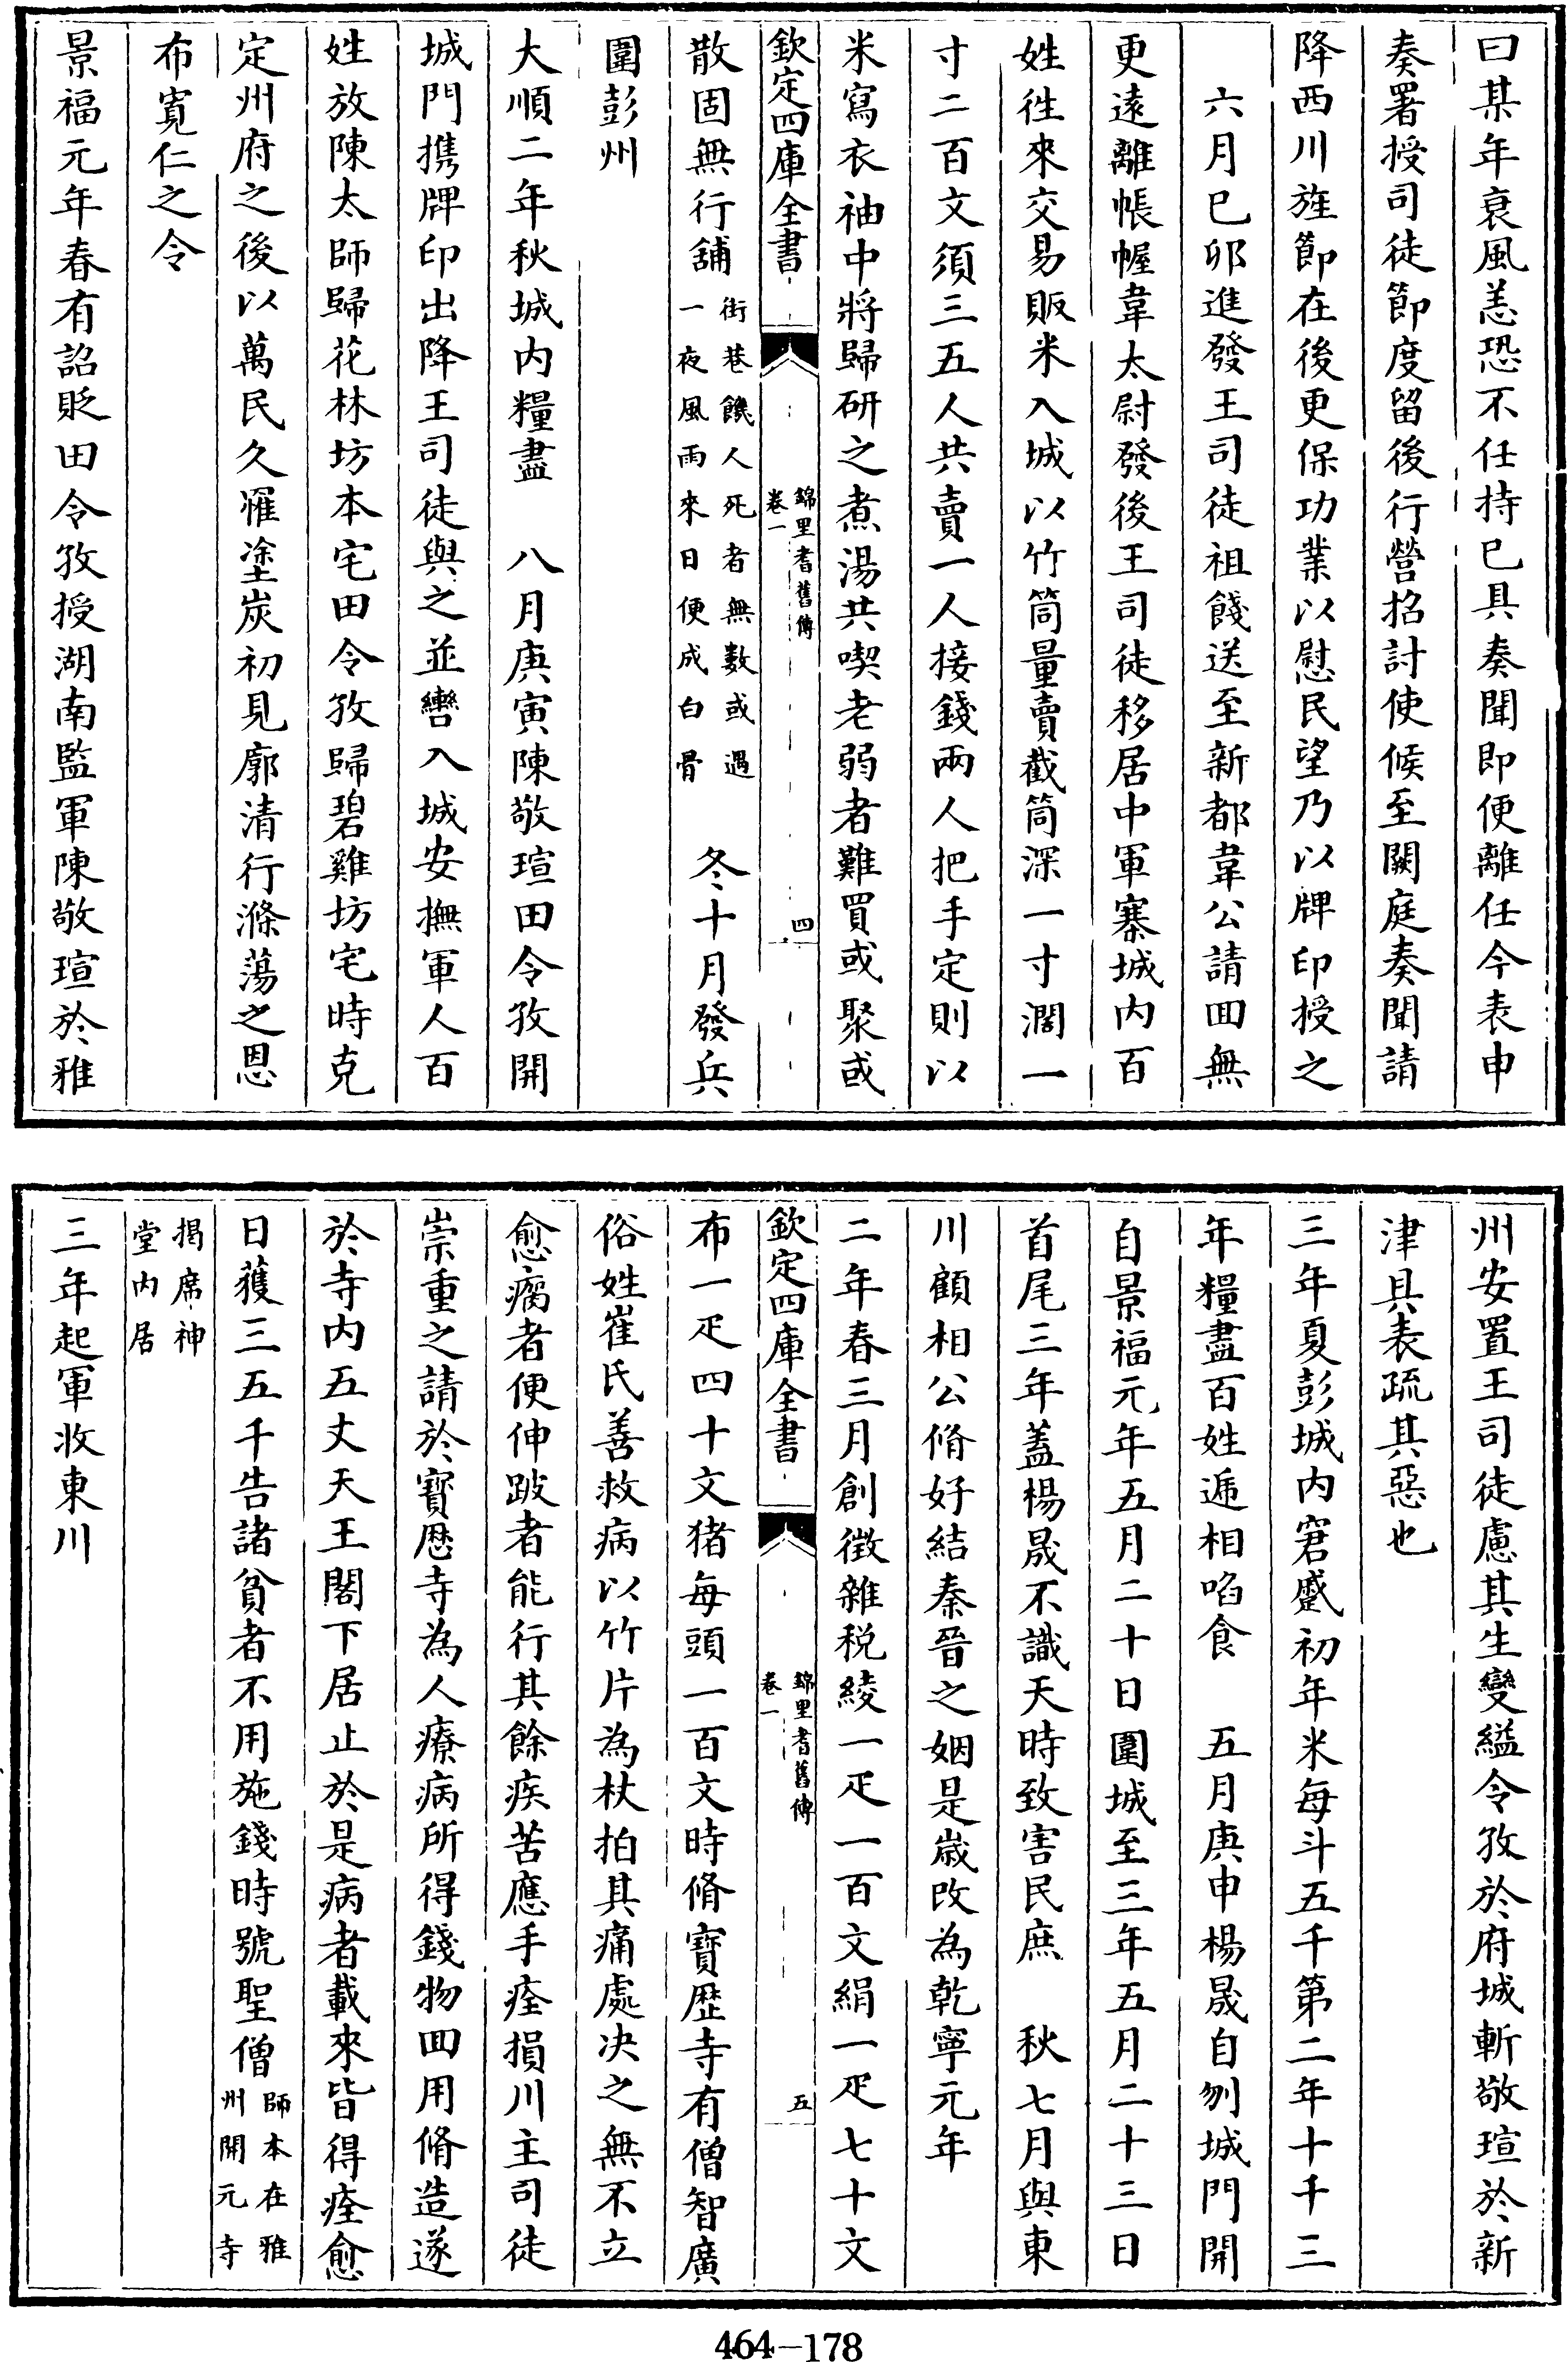 曰某年衰風恙恐不任持已具奏聞即便離任今表申
奏署授司徒節度留後行營招討使候至闕庭奏聞請
降西川旌節在後更保功業以慰民望乃以牌印授之
六月已卯進發王司徒祖餞送至新都韋公請囬無
更逺離帳幄韋太尉發後王司徒移居中軍寨城内百
姓徃來交易販米入城以竹筒量賣截筒深一寸濶一
寸二百文須三五人共賣一人接錢兩人把手定則以
米寫衣袖中將歸研之煮湯共喫老弱者難買或聚或
欽定四庫全書
錦里耆舊傳
卷一
四
散固無行舖街巷饑人死者無數或遇
一夜風雨來日便成白骨 冬十月發兵
圍彭州
大順二年秋城内糧盡 八月庚寅陳敬瑄田令孜開
城門携牌印出降王司徒與之並轡入城安撫軍人百
姓放陳太師歸花林坊本宅田令孜歸碧雞坊宅時克
定州府之後以萬民久罹塗炭初見廓清行滌蕩之恩
布寛仁之令
景福元年春有詔貶田令孜授湖南監軍陳敬瑄於雅
州安置王司徒慮其生變縊令孜於府城斬敬瑄於新
津具表疏其惡也
三年夏彭城内窘蹙初年米每斗五千第二年十千三
年糧盡百姓遞相啗食 五月庚申楊晟自刎城門開
自景福元年五月二十日圍城至三年五月二十三日
首尾三年蓋楊晟不識天時致害民庶 秋七月與東
川顧相公脩好結秦晉之姻是歲改為乾寧元年
二年春三月創徴雜税綾一疋一百文絹一疋七十文
欽定四庫全書
錦里耆舊傳
卷一
五
布一疋四十文猪每頭一百文時脩寳歴寺有僧智廣
俗姓崔氏善救病以竹片為杖拍其痛處决之無不立
愈瘸者便伸跛者能行其餘疾苦應手痊損川主司徒
崇重之請於寳歴寺為人療病所得錢物囬用脩造遂
於寺内五丈天王閣下居止於是病者載來皆得痊愈
日獲三五千告諸貧者不用施錢時號聖僧師本在雅
州開元寺
揭席神
堂内居
三年起軍收東川
464-178